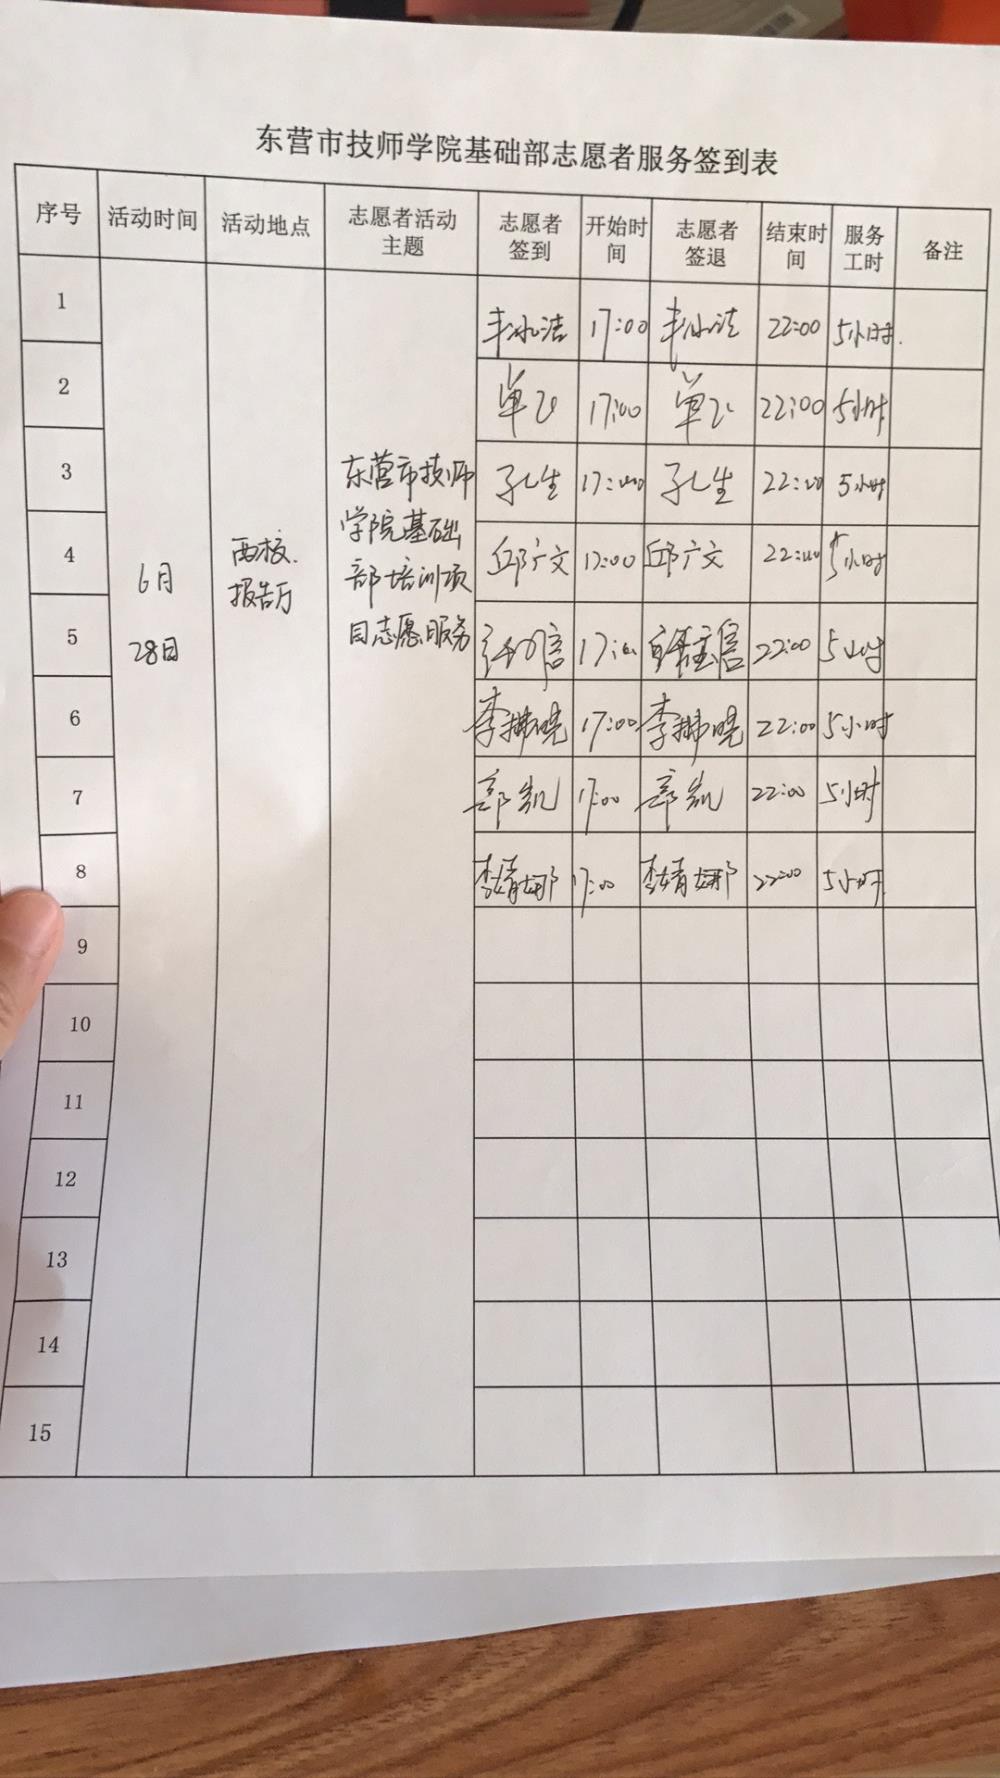 东营市技师学院基础部志愿者服务签到表
序号 活动时间 活动地点 志愿者活动主题 志愿者签到 开始时间 志愿者签退 结束时间 服务工时 备注
6月28日
西校报告厅
东营市技师
学院基础
部培训项
目志愿服务
1 丰冰洁 17:00 丰冰洁 22:00 5小时
2 单飞 17:00 单飞 22:00 5小时
3 孔生 17:00 孔生 22:00 5小时
4 邱广文 17:00 邱广文 22:00 5小时
5 17:00 22:00 5小时
6 李拂晓 17:00 李拂晓 22:00 5小时
7 郭凯 17:00 郭凯 22:00 5小时
8 李婧娜 17:00 李婧娜 22:00 5小时
9
10
11
12
13
14
15